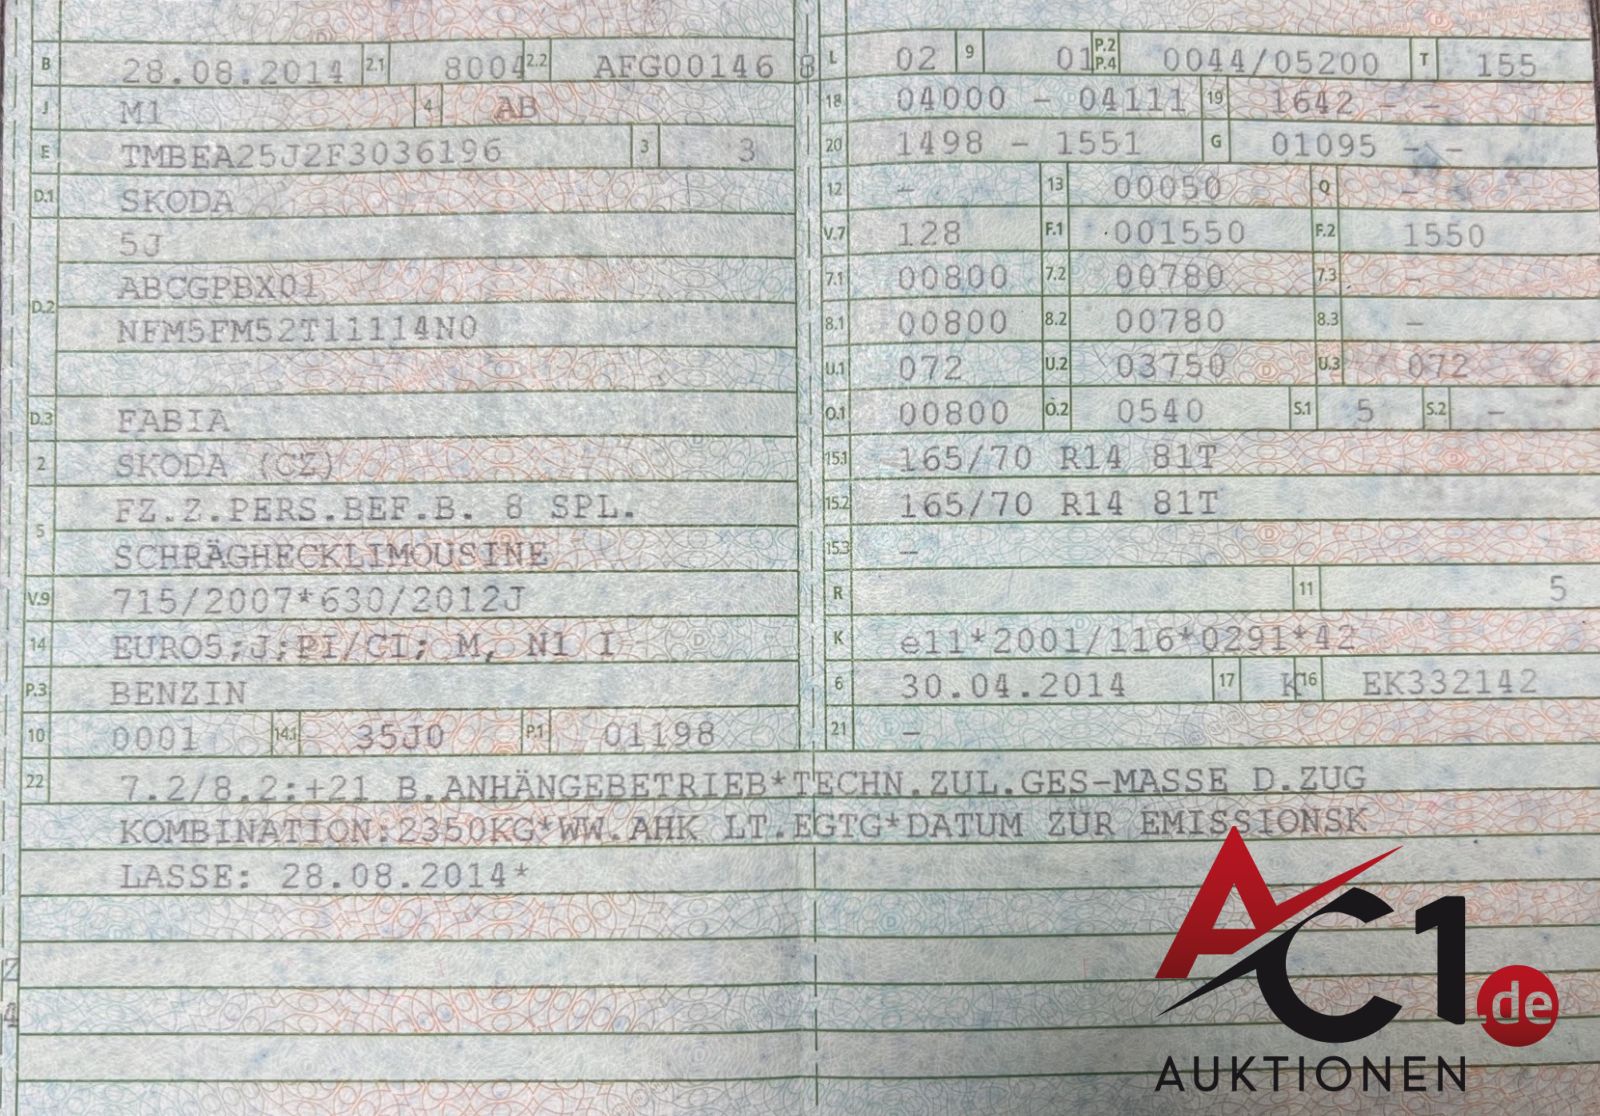 B 28.08.2014 2.1 8004 2.2 AFG00146 8
J M1 4 AB
E TMBEA25J2F3036196 3 3
D.1 SKODA
5J
ABCGPBX01
D.2
NFM5FM52T11114N0
D.3 FABIA
2 SKODA (CZ)
FZ.Z.PERS.BEF.B. 8 SPL.
5
SCHRÄGHECKLIMOUSINE
V.9 715/2007*630/2012J
14 EURO5;J;PI/CI; M, N1 I
P.3 BENZIN
10 0001 14.1 35J0 P.1 01198
L 02 9 01 P.2 P.4 0044/05200 T 155
18 04000 - 04111 19 1642 - -
20 1498 - 1551 G 01095 - -
12 - 13 00050 Q -
V.7 128 F.1 001550 F.2 1550
7.1 00800 7.2 00780 7.3 -
8.1 00800 8.2 00780 8.3 -
U.1 072 U.2 03750 U.3 072
O.1 00800 O.2 0540 S.1 5 S.2 -
15.1 165/70 R14 81T
15.2 165/70 R14 81T
15.3 -
R 11 5
K e11*2001/116*0291*42
6 30.04.2014 17 K 16 EK332142
21 -
22 7.2/8.2:+21 B.ANHÄNGEBETRIEB*TECHN.ZUL.GES-MASSE D.ZUG
KOMBINATION:2350KG*WW.AHK LT.EGTG*DATUM ZUR EMISSIONSK
LASSE: 28.08.2014*
AC1.de
AUKTIONEN